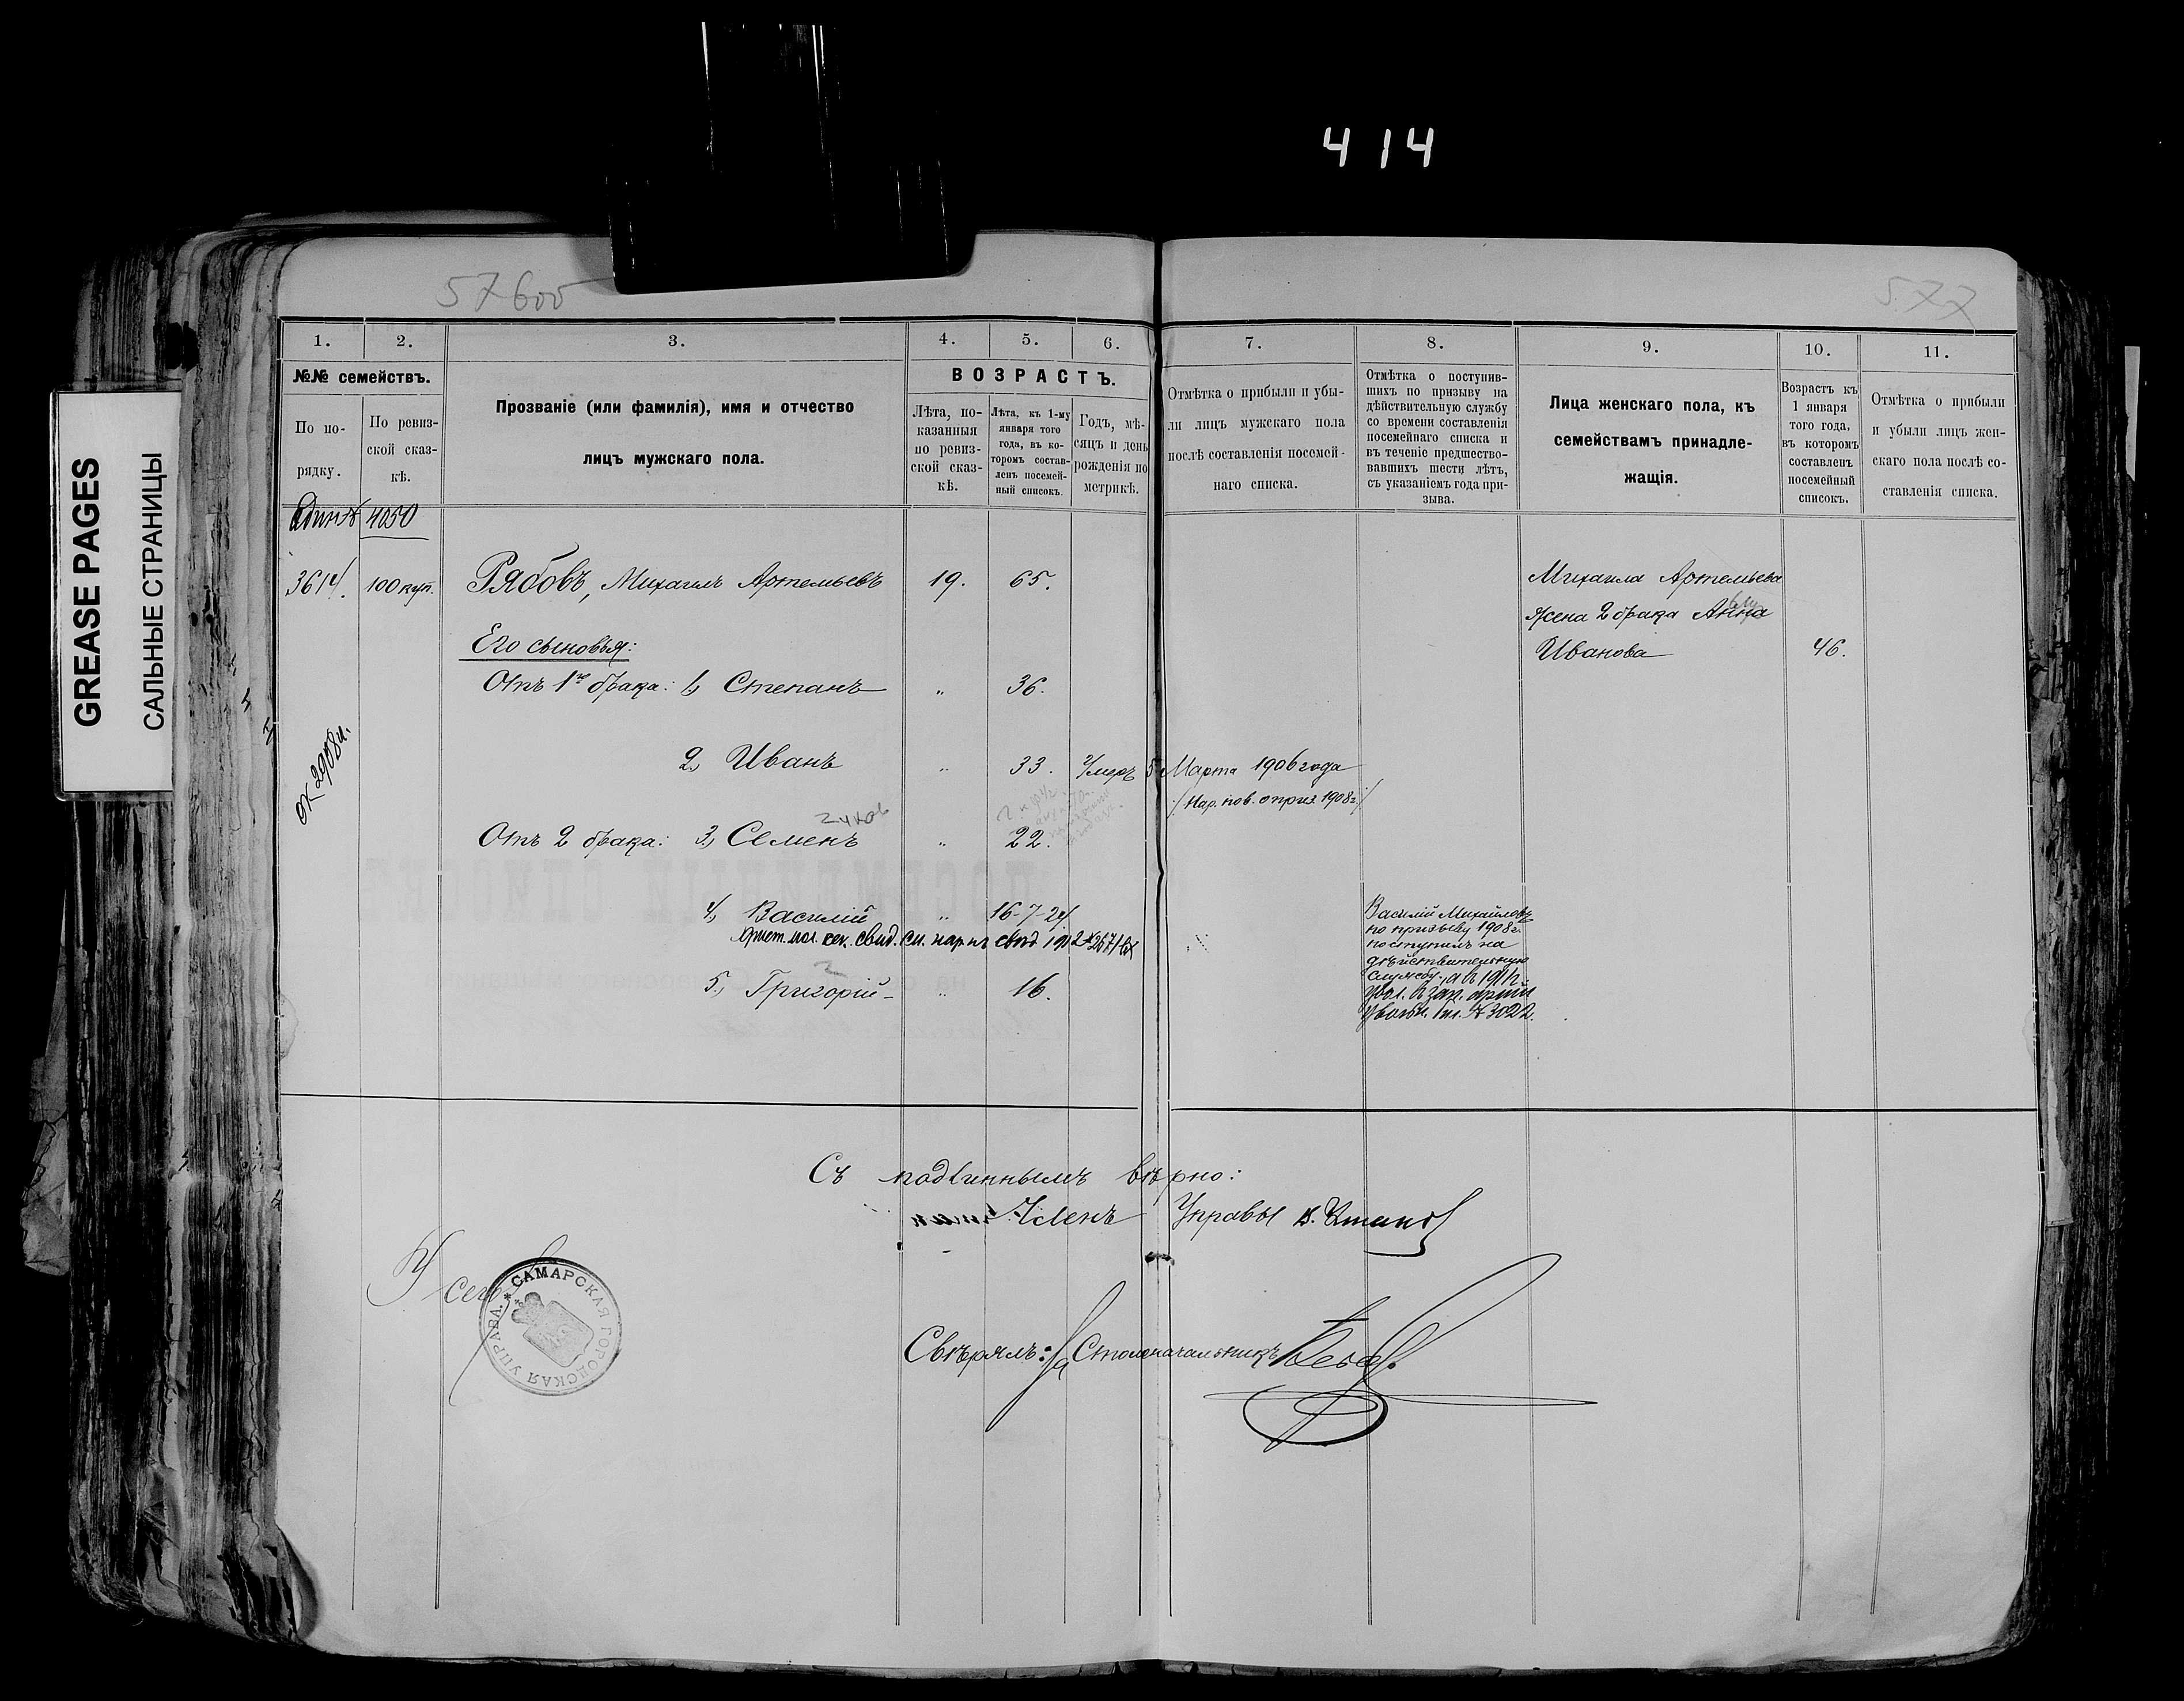 414
GREASE PAGES
САЛЬНЫЕ СТРАНИЦЫ
577
1.
2.
3.
4.
5.
6.
7.
8.
9.
10.
11.
№№ семействъ.
По по-
рядку.
По ревиз-
ской сказ-
кѣ.
Прозваніе (или фамилія), имя и отчество
лицъ мужскаго пола.
ВОЗРАСТЪ.
Лѣта, по-
казанныя
по ревиз-
ской сказ-
кѣ.
Лѣта, къ 1-му
января того
года, въ ко-
торомъ состав-
ленъ посемей-
ный списокъ.
Годъ, мѣ-
сяцъ и день
рожденія по
метрикѣ.
Отмѣтка о прибыли и убы-
ли лицъ мужскаго пола
послѣ составленія посемей-
наго списка.
Отмѣтка о поступив-
шихъ по призыву на
дѣйствительную службу
со времени составленія
посемейнаго списка и
въ теченіе предшество-
вавшихъ шести лѣтъ,
съ указаніемъ года при-
зыва.
Лица женскаго пола, къ
семействамъ принадле-
жащія.
Возрастъ къ
1 января
того года,
въ которомъ
составленъ
посемейный
списокъ.
Отмѣтка о прибыли
и убыли лицъ жен-
скаго пола послѣ со-
ставленія списка.
4050
3614. 100 куп. Рябовъ, Михаилъ Артемьевъ 19. 65.
Михаила Артемьева
жена 2 брака Анна
Иванова 46.
Его сыновья:
Отъ 1го брака: 1) Степанъ " 36.
2) Иванъ " 33. Умеръ 5 Марта 1906 года
/: Нар. пов. о приз. 1908 г. :/
Отъ 2 брака: 3) Семенъ " 22.
4) Василій " 16-7-24
5) Григорій - " 16.
Василій Михайловъ
по призыву 1908 г.
поступилъ на
дѣйствительную
службу, а въ
Съ подлиннымъ вѣрно:
Членъ Управы
САМАРСКАЯ ГОРОДСКАЯ УПРАВА.
Свѣрялъ: За Столоначальникъ